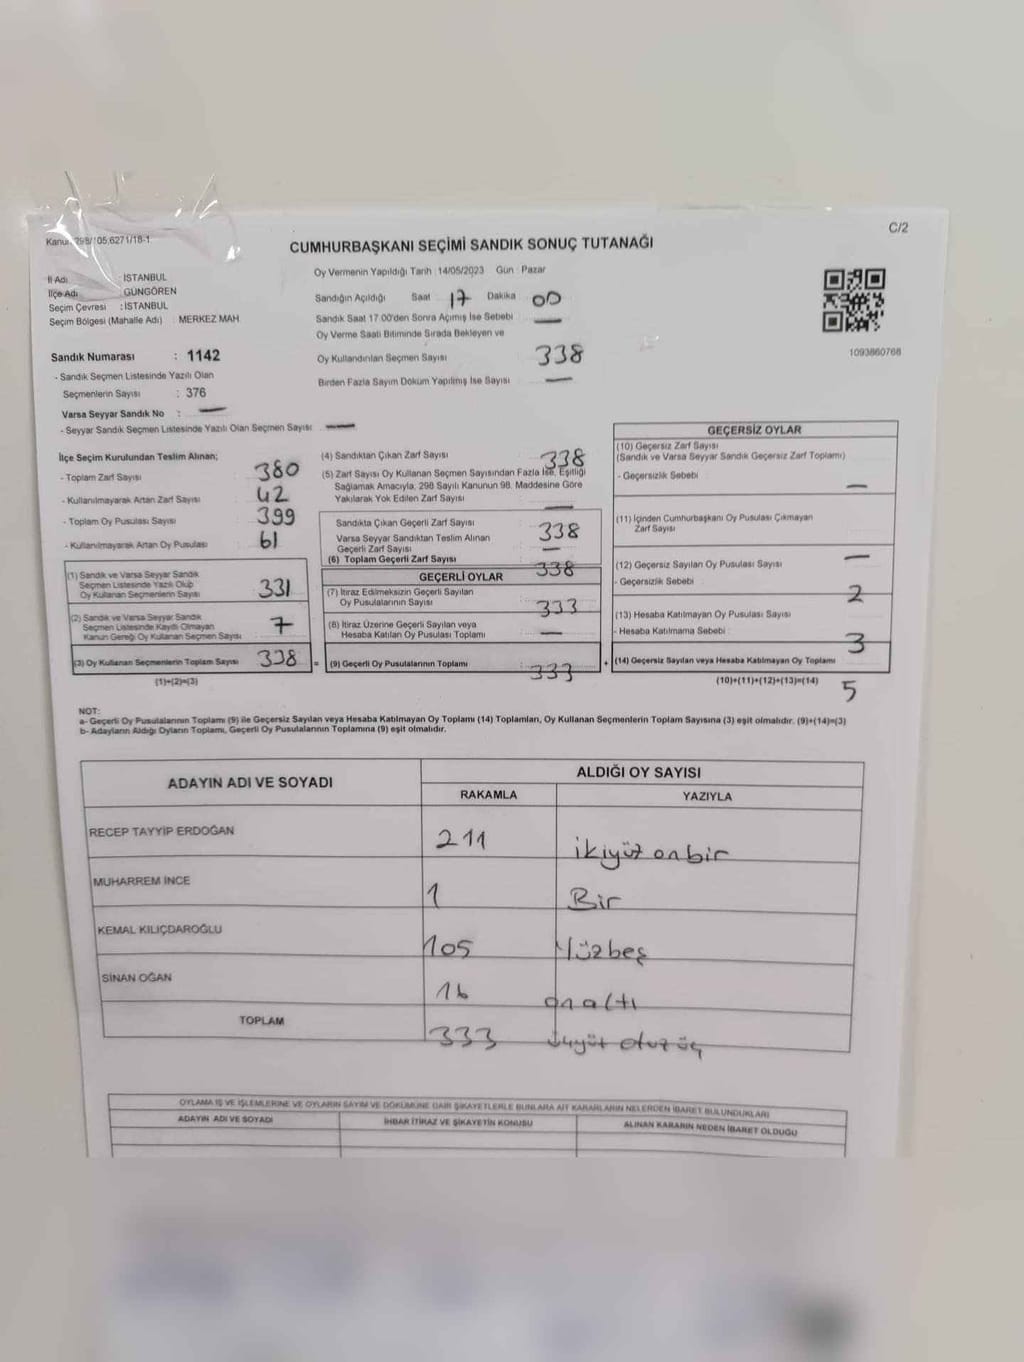 Kanun 298/105,6271/18-1
C/2
CUMHURBAŞKANI SEÇİMİ SANDIK SONUÇ TUTANAĞI
İl Adı : İSTANBUL
İlçe Adı : GÜNGÖREN
Seçim Çevresi : İSTANBUL
Seçim Bölgesi (Mahalle Adı) : MERKEZ MAH.
Oy Vermenin Yapıldığı Tarih : 14/05/2023 Gün : Pazar
Sandığın Açıldığı Saat 17 Dakika 00
Sandık Saat 17.00'den Sonra Açımış İse Sebebi —
Oy Verme Saati Bitiminde Sırada Bekleyen ve
Oy Kullandırılan Seçmen Sayısı 338
Birden Fazla Sayım Döküm Yapılmış İse Sayısı —
1093860766
Sandık Numarası : 1142
- Sandık Seçmen Listesinde Yazılı Olan
Seçmenlerin Sayısı : 376
Varsa Seyyar Sandık No : —
- Seyyar Sandık Seçmen Listesinde Yazılı Olan Seçmen Sayısı : —
İlçe Seçim Kurulundan Teslim Alınan;
- Toplam Zarf Sayısı 380
- Kullanılmayarak Artan Zarf Sayısı 42
- Toplam Oy Pusulası Sayısı 399
- Kullanılmayarak Artan Oy Pusulası 61
(1) Sandık ve Varsa Seyyar Sandık
Seçmen Listesinde Yazılı Olup
Oy Kullanan Seçmenlerin Sayısı 331
(2) Sandık ve Varsa Seyyar Sandık
Seçmen Listesinde Kayıtlı Olmayan
Kanun Gereği Oy Kullanan Seçmen Sayısı 7
(3) Oy Kullanan Seçmenlerin Toplam Sayısı 338
(1)+(2)=(3)
(4) Sandıktan Çıkan Zarf Sayısı 338
(5) Zarf Sayısı Oy Kullanan Seçmen Sayısından Fazla İse, Eşitliği
Sağlamak Amacıyla, 298 Sayılı Kanunun 98. Maddesine Göre
Yakılarak Yok Edilen Zarf Sayısı —
Sandıkta Çıkan Geçerli Zarf Sayısı 338
Varsa Seyyar Sandıktan Teslim Alınan
Geçerli Zarf Sayısı —
(6) Toplam Geçerli Zarf Sayısı 338
GEÇERLİ OYLAR
(7) İtiraz Edilmeksizin Geçerli Sayılan
Oy Pusulalarının Sayısı 333
(8) İtiraz Üzerine Geçerli Sayılan veya
Hesaba Katılan Oy Pusulası Toplamı —
= (9) Geçerli Oy Pusulalarının Toplamı 333
GEÇERSİZ OYLAR
(10) Geçersiz Zarf Sayısı
(Sandık ve Varsa Seyyar Sandık Geçersiz Zarf Toplamı)
- Geçersizlik Sebebi —
(11) İçinden Cumhurbaşkanı Oy Pusulası Çıkmayan
Zarf Sayısı —
(12) Geçersiz Sayılan Oy Pusulası Sayısı
- Geçersizlik Sebebi 2
(13) Hesaba Katılmayan Oy Pusulası Sayısı
- Hesaba Katılmama Sebebi 3
+ (14) Geçersiz Sayılan veya Hesaba Katılmayan Oy Toplamı
(10)+(11)+(12)+(13)=(14) 5
NOT:
a- Geçerli Oy Pusulalarının Toplamı (9) ile Geçersiz Sayılan veya Hesaba Katılmayan Oy Toplamı (14) Toplamları, Oy Kullanan Seçmenlerin Toplam Sayısına (3) eşit olmalıdır. (9)+(14)=(3)
b- Adayların Aldığı Oyların Toplamı, Geçerli Oy Pusulalarının Toplamına (9) eşit olmalıdır.
ADAYIN ADI VE SOYADI
ALDIĞI OY SAYISI
RAKAMLA YAZIYLA
RECEP TAYYİP ERDOĞAN 211 ikiyüz onbir
MUHARREM İNCE 1 Bir
KEMAL KILIÇDAROĞLU 105 Yüzbeş
SİNAN OĞAN 16 on altı
TOPLAM 333 üçyüz otuz üç
OYLAMA İŞ VE İŞLEMLERİNE VE OYLARIN SAYIM VE DÖKÜMÜNE DAİR ŞİKAYETLERLE BUNLARA AİT KARARLARIN NELERDEN İBARET BULUNDUKLARI
ADAYIN ADI VE SOYADI
İHBAR İTİRAZ VE ŞİKAYETİN KONUSU
ALINAN KARARIN NEDEN İBARET OLDUĞU